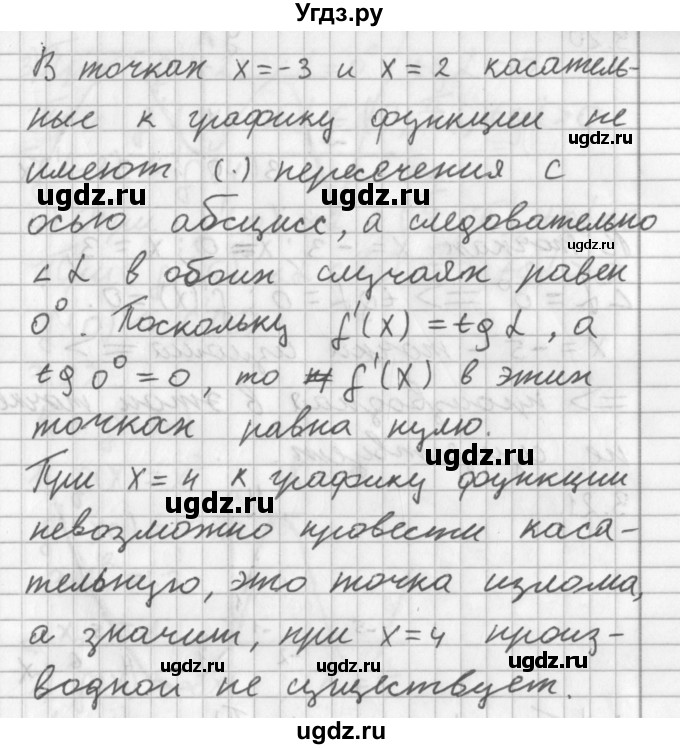 Угдз.ру
В точках x=-3 и x=2 касатель-
ные к графику функции не
ugdz.ru
имеют (·) пересечения с
ugdz.ru ugdz.ru
осью абсцисс, а следовательно
ugdz.ru
∠α в обоих случаях равен
0°. Поскольку f'(x) = tg α, а
ugdz.ru ugdz.ru
tg 0° = 0, то f'(x) в этих
точках равна нулю.
ugdz.ru
При x=4 к графику функции
ugdz.ru
невозможно провести каса-
тельную, это точка излома,
ugdz.ru
а значит, при x=4 произ-
ugdz.ru ugdz.ru
водной не существует.
ugdz.ru
ugdz.ru